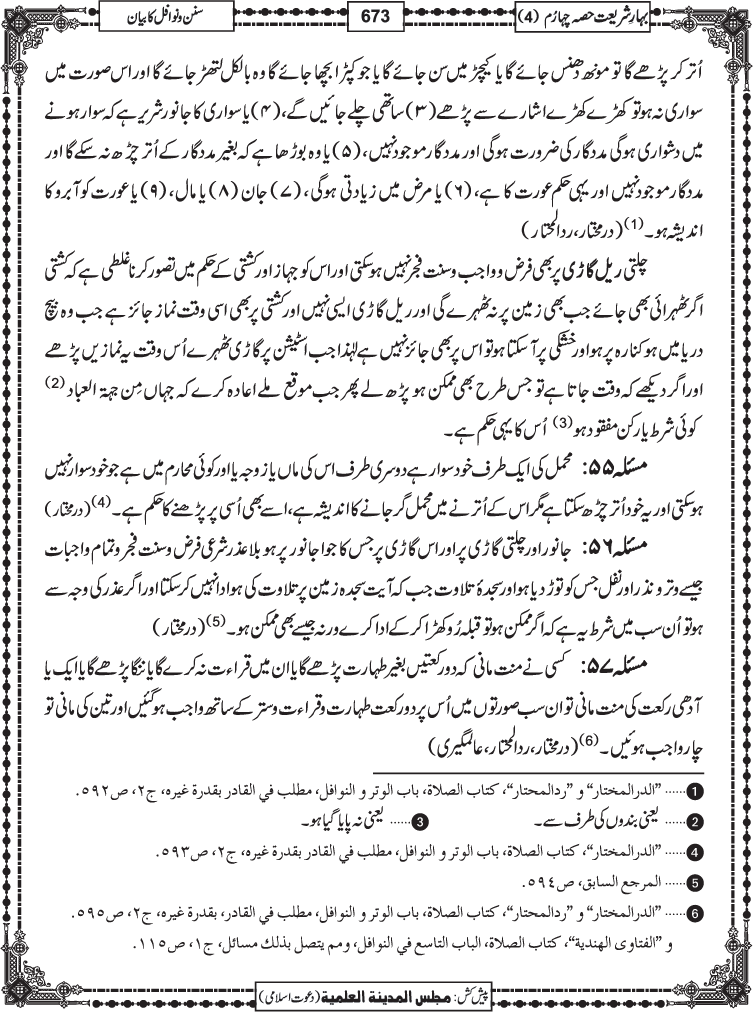 بہارِ شریعت حصہ چہارم (4)
673
سنن و نوافل کا بیان
اُتر کر پڑھے گا تو مونھ دھنس جائے گا یا کیچڑ میں سن جائے گا یا جو کپڑا بچھا جائے گا وہ بالکل لتھڑ جائے گا اور اس صورت میں
سواری نہ ہو تو کھڑے کھڑے اشارے سے پڑھے (۳) ساتھی چلے جائیں گے، (۴) یا سواری کا جانور شریر ہے کہ سوار ہونے
میں دشواری ہوگی مددگار کی ضرورت ہوگی اور مددگار موجود نہیں، (۵) یا وہ بوڑھا ہے کہ بغیر مددگار کے اُتر چڑھ نہ سکے گا اور
مددگار موجود نہیں اور یہی حکم عورت کا ہے، (۶) یا مرض میں زیادتی ہوگی، (۷) جان (۸) یا مال، (۹) یا عورت کو آبرو کا
اندیشہ ہو۔ (1) (درمختار، ردالمحتار)
چلتی ریل گاڑی پر بھی فرض و واجب و سنت فجر نہیں ہو سکتی اور اس کو جہاز اور کشتی کے حکم میں تصور کرنا غلطی ہے کہ کشتی
اگر ٹھہرائی بھی جائے جب بھی زمین پر نہ ٹھہرے گی اور ریل گاڑی ایسی نہیں اور کشتی پر بھی اسی وقت نماز جائز ہے جب وہ بیچ
دریا میں ہو کنارہ پر ہو اور خشکی پر آسکتا ہو تو اس پر بھی جائز نہیں ہے لہٰذا جب اسٹیشن پر گاڑی ٹھہرے اُس وقت یہ نمازیں پڑھے
اور اگر دیکھے کہ وقت جاتا ہے تو جس طرح بھی ممکن ہو پڑھ لے پھر جب موقع ملے اعادہ کرے کہ جہاں مِن جھۃ العباد (2)
کوئی شرط یا رکن مفقود ہو (3) اُس کا یہی حکم ہے۔
مسئلہ ۵۵: محمل کی ایک طرف خود سوار ہے دوسری طرف اس کی ماں یا زوجہ یا اور کوئی محارم میں ہے جو خود سوار نہیں
ہوسکتی اور یہ خود اُتر چڑھ سکتا ہے مگر اس کے اُترنے میں محمل گر جانے کا اندیشہ ہے، اسے بھی اُسی پر پڑھنے کا حکم ہے۔ (4) (درمختار)
مسئلہ ۵۶: جانور اور چلتی گاڑی پر اور اس گاڑی پر جس کا جوا جانور پر ہو بلا عذر شرعی فرض و سنت فجر و تمام واجبات
جیسے وتر و نذر اور نفل جس کو توڑ دیا ہو اور سجدۂ تلاوت جب کہ آیت سجدہ زمین پر تلاوت کی ہو ادا نہیں کرسکتا اور اگر عذر کی وجہ سے
ہو تو اُن سب میں شرط یہ ہے کہ اگر ممکن ہو تو قبلہ رُو کھڑا کر کے ادا کرے ورنہ جیسے بھی ممکن ہو۔ (5) (درمختار)
مسئلہ ۵۷: کسی نے منت مانی کہ دو رکعتیں بغیر طہارت پڑھے گا یا ان میں قراءت نہ کرے گا یا ننگا پڑھے گا یا ایک یا
آدھی رکعت کی منت مانی تو ان سب صورتوں میں اُس پر دو رکعت طہارت و قراءت و ستر کے ساتھ واجب ہوگئیں اور تین کی مانی تو
چار واجب ہوئیں۔ (6) (درمختار، ردالمحتار، عالمگیری)
1 ...... "الدرالمختار" و "ردالمحتار"، كتاب الصلاة، باب الوتر و النوافل، مطلب في القادر بقدرة غيره، ج٢، ص٥٩٢.
2 ...... یعنی بندوں کی طرف سے۔ 3 ...... یعنی نہ پایا گیا ہو۔
4 ...... "الدرالمختار"، كتاب الصلاة، باب الوتر و النوافل، مطلب في القادر بقدرة غيره، ج٢، ص٥٩٣.
5 ...... المرجع السابق، ص٥٩٤.
6 ...... "الدرالمختار" و "ردالمحتار"، كتاب الصلاة، باب الوتر و النوافل، مطلب في القادر، بقدرة غيره، ج٢، ص٥٩٥.
و "الفتاوى الهندية"، كتاب الصلاة، الباب التاسع في النوافل، ومم يتصل بذلك مسائل، ج١، ص١١٥.
پیش کش: مجلس المدینة العلمیة (دعوت اسلامی)